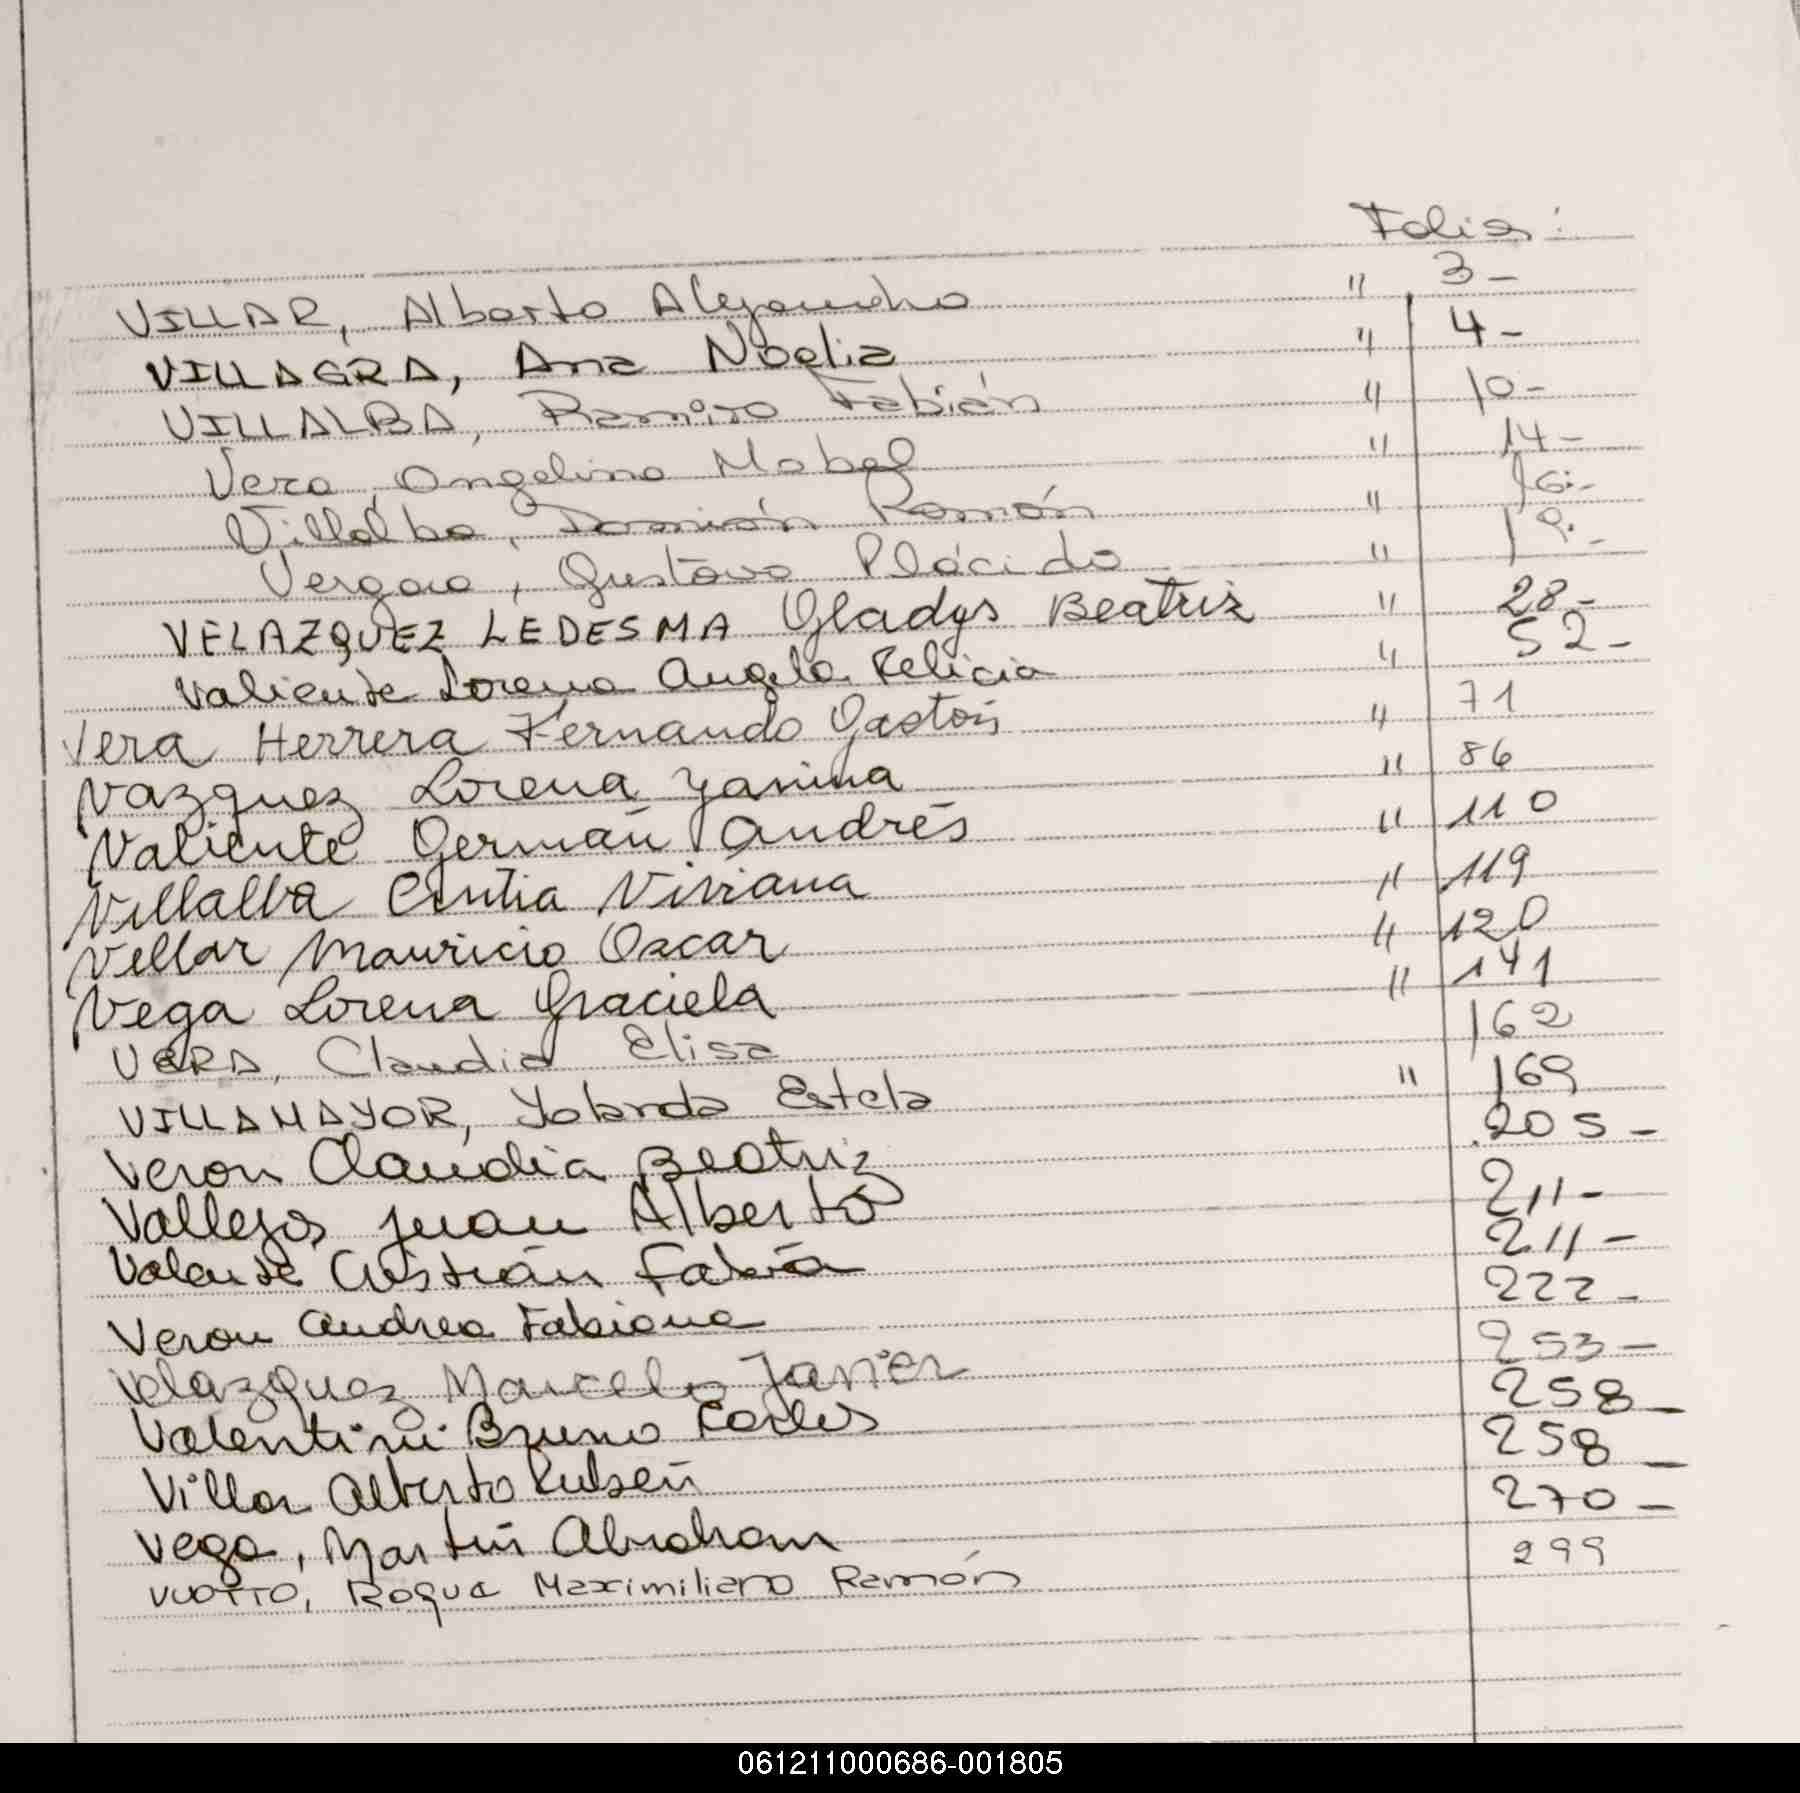 Folio:
VILLAR, Alberto Alejandro " 3-
VILLAGRA, Ana Noelia " 4-
VILLALBA, Ramiro Fabián " 10-
Vera, Angelina Mabel " 14-
Villalba, Damián Ramón " 16.-
Vergara, Gustavo Plácido "
VELAZQUEZ LEDESMA Gladys Beatriz " 28-
Valiente Lorena Angela Felicia " 52-
Vera Herrera Fernando Gastón " 71
Vazquez Lorena Yanina " 86
Valiente Germán Andrés " 110
Villalba Cintia Viviana " 119
Villar Mauricio Oscar " 120
Vega Lorena Graciela " 141
VERA, Claudia Elisa 162
VILLAMAYOR, Yolanda Estela " 169
Veron Claudia Beatriz 205-
Vallejos Juan Alberto 211-
Valente Cristián Fabián 211-
Veron Andrea Fabiana 222-
Velazquez Marcelo Javier 253-
Valentini Bruno 258-
Villar Alberto Rubén 258-
Vega, Martín Abraham 270-
VUOTTO, Roque Maximiliano Ramón 299
061211000686-001805